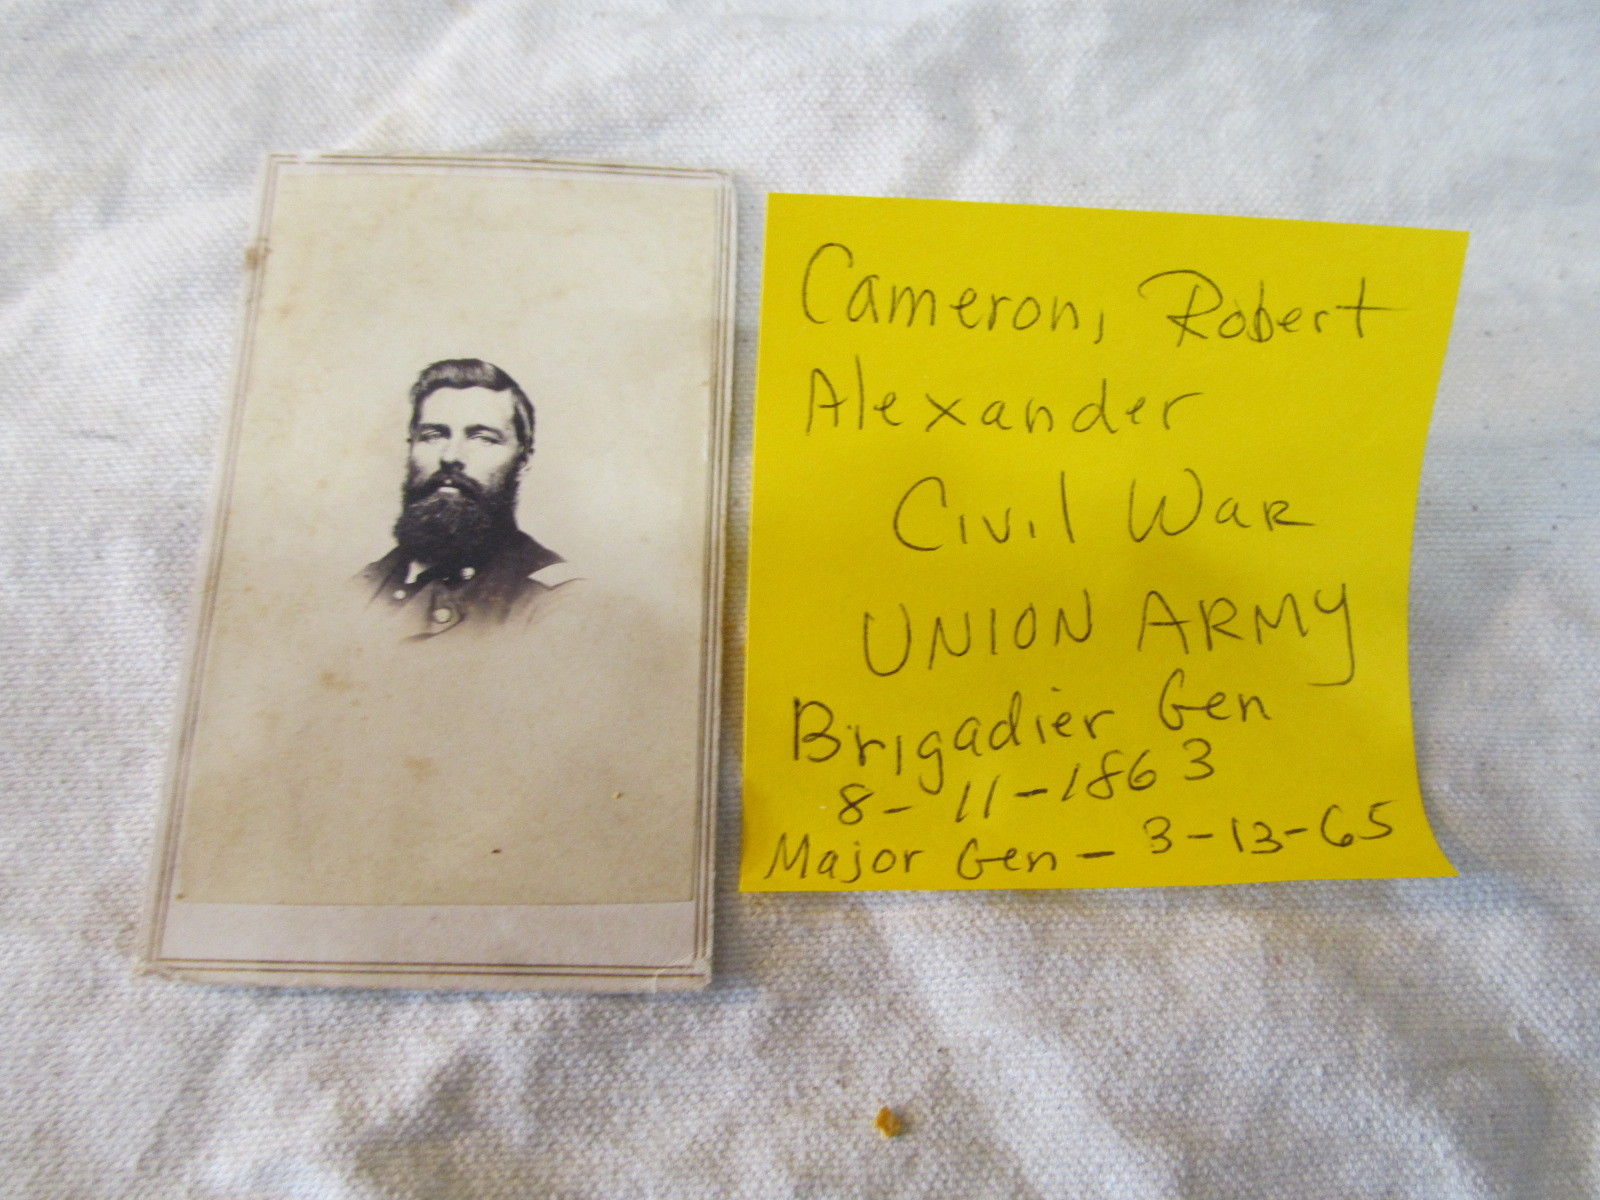 Cameron, Robert
Alexander
Civil War
UNION ARMY
Brigadier Gen
8-11-1863
Major Gen - 3-13-65